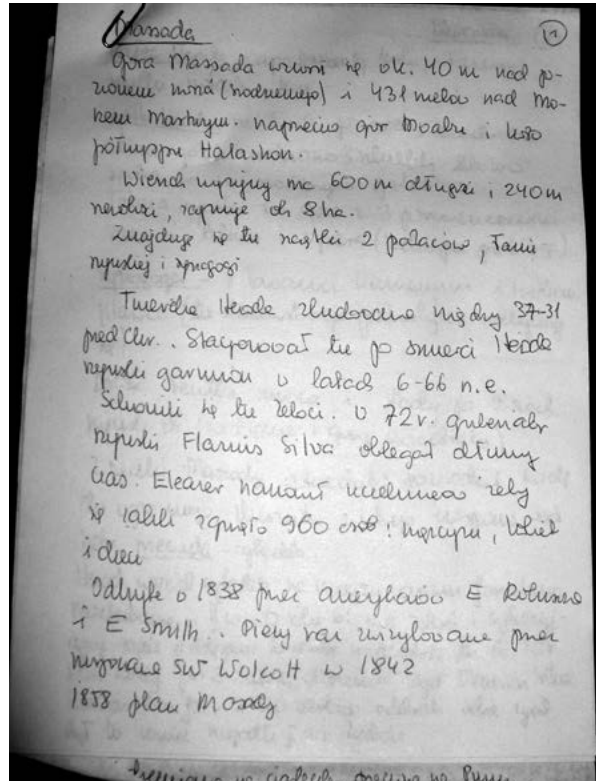 Massada
1
Góra Massada wznosi się ok. 40 m nad po-
ziomem morza (śródziemnego) i 431 metrów nad Mo-
rzem Martwym. naprzeciw gór Moabu i koło
półwyspu Halashon.
Wierzch wyżyny ma 600 m długości i 240 m
szerokości, zajmuje ok 8 ha.
Znajduje się tu resztki 2 pałaców, łaźni
rzymskiej i synagogi
Twierdza Heroda zbudowana między 37-31
przed Chr.. Stacjonował tu po śmierci Heroda
rzymski garnizon w latach 6-66 n.e.
Schronili się tu Zeloci. W 72 r. gubernator
rzymski Flavius Silva oblegał dłuższy
czas. Eleazar żeby
się zabili zginęło 960 osób: mężczyzn, kobiet
i dzieci
Odkryte w 1838 przez amerykanów E Robinsona
i E Smith. Pierwszy raz przez
S W Wolcott w 1842
1858 plan Masady